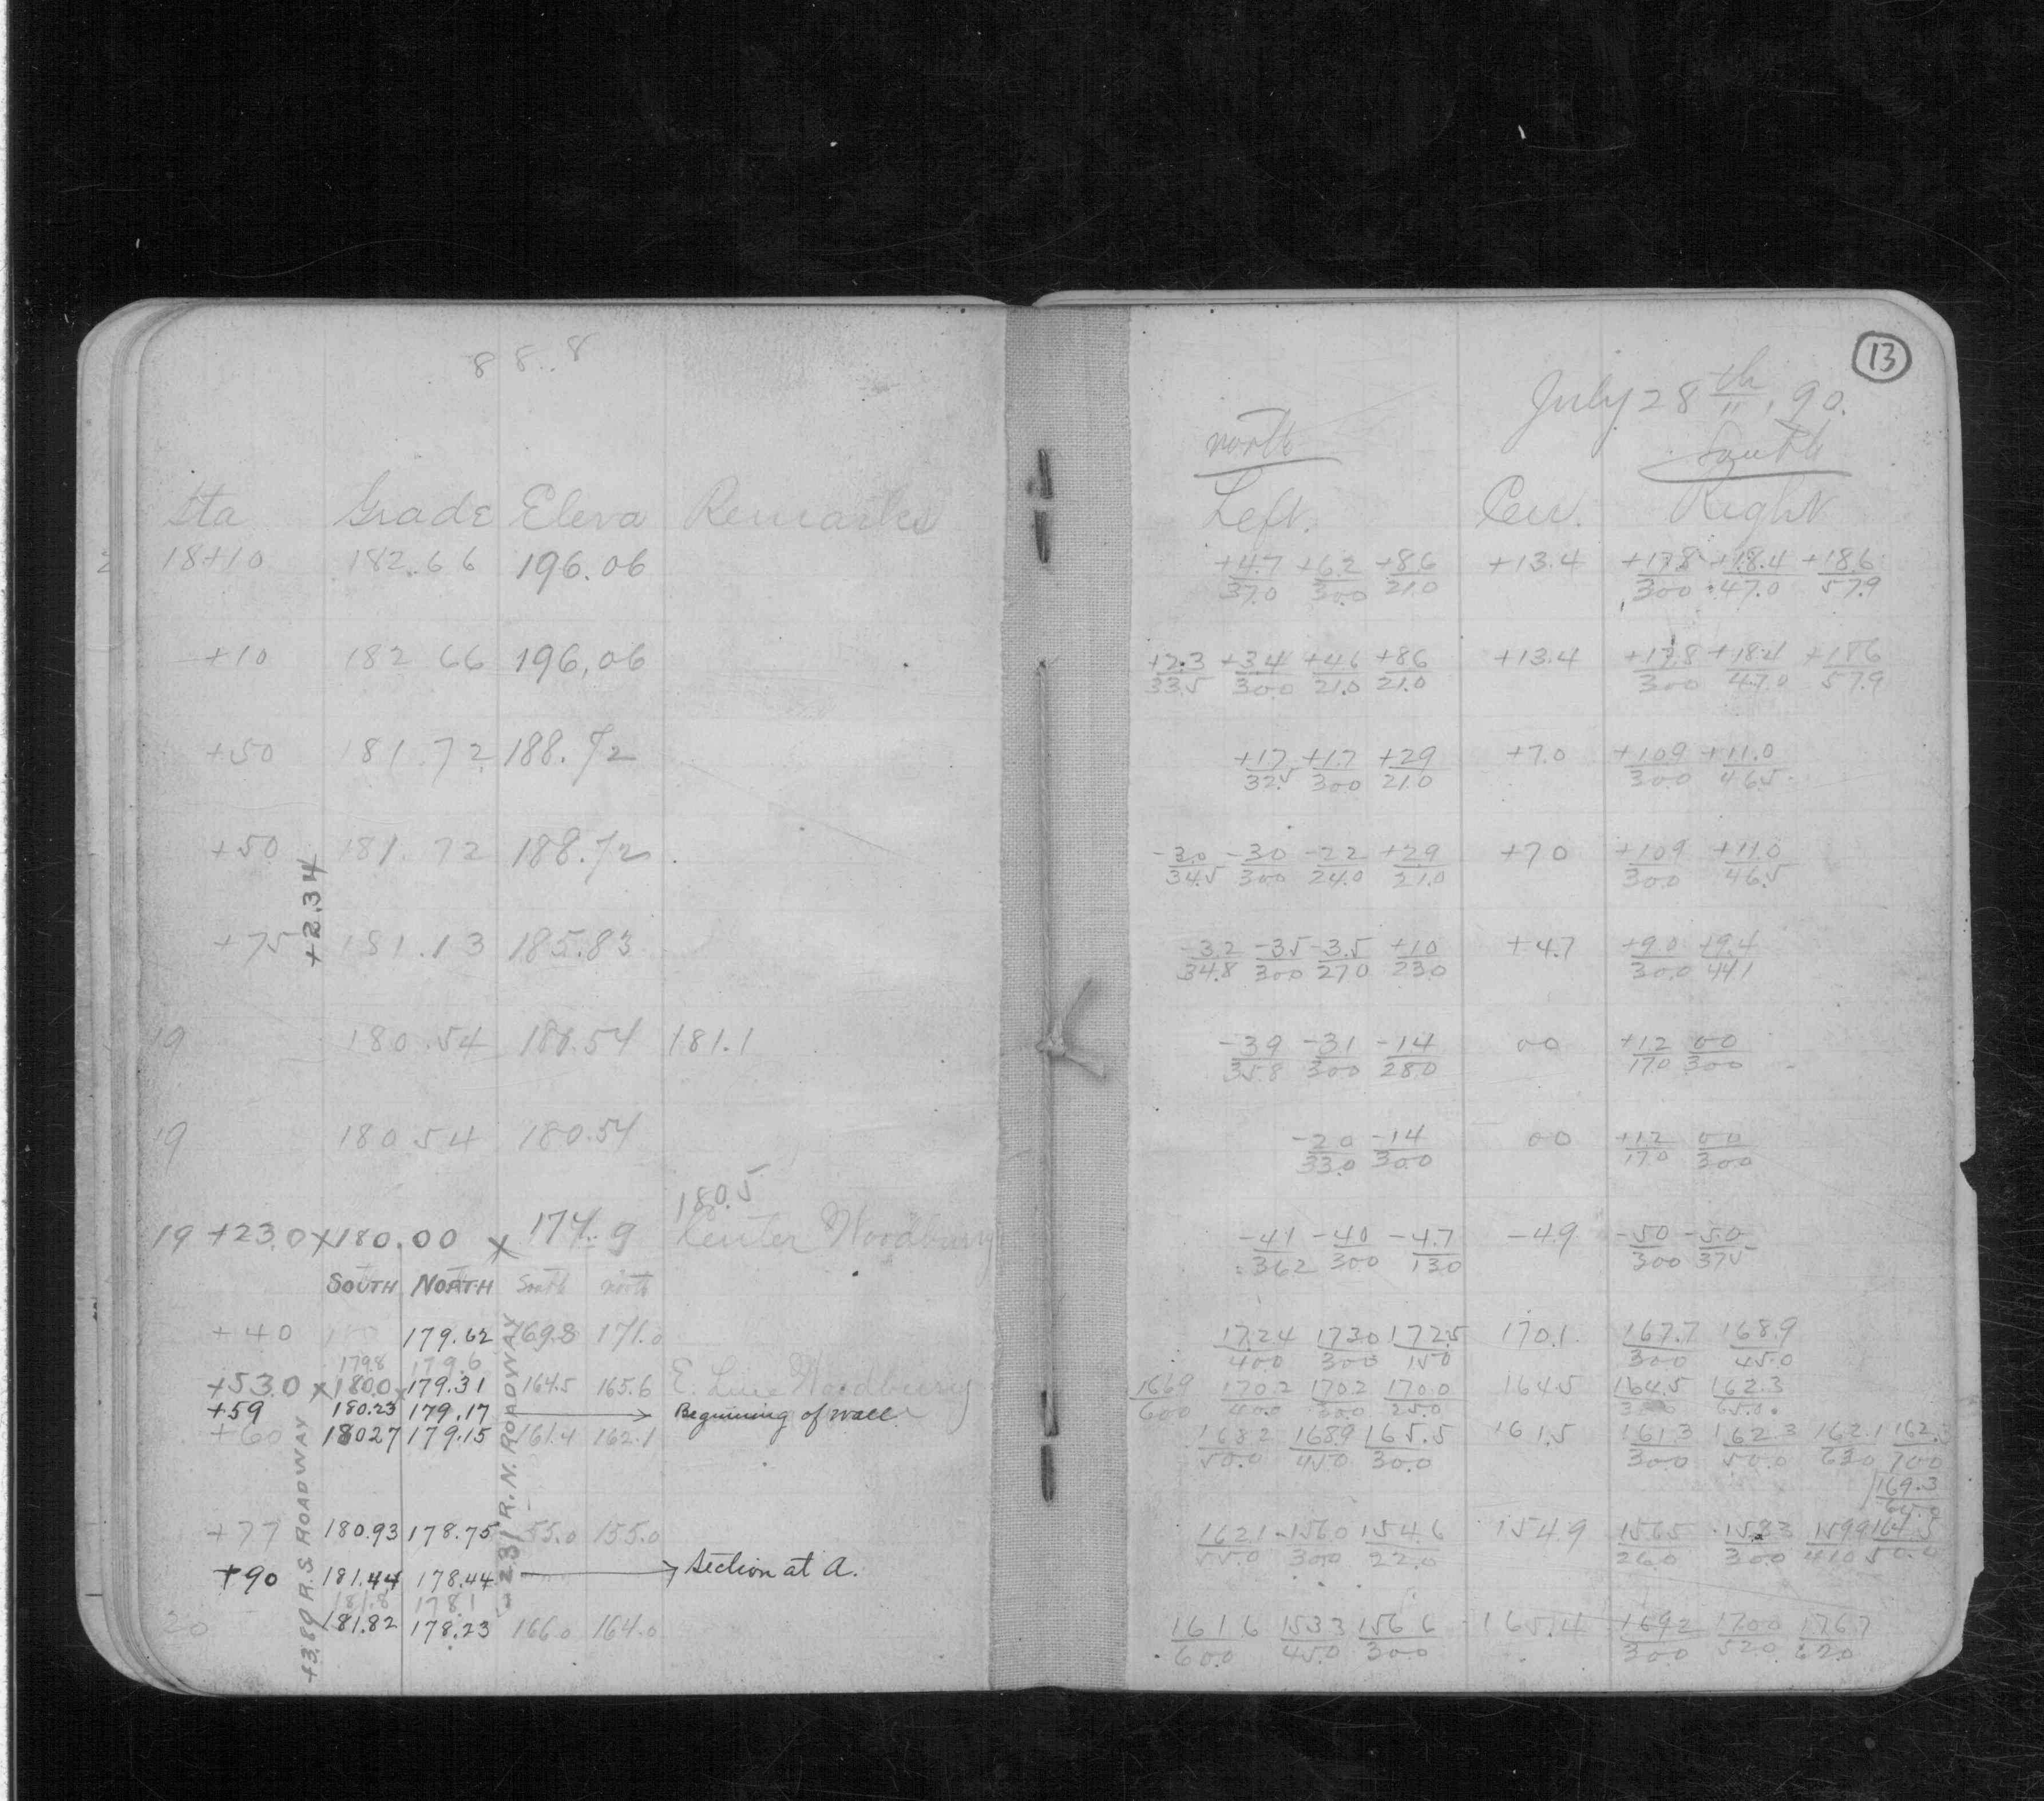 8 8.8
Sta Grade Eleva Remarks
18+10 182.66 196.06
+10 182 66 196.06
+50 181.72 188.72
+50 181.72 188.72
+2.34
+75 181.13 185.83
19 180.54 180.54 181.1
19 180.54 180.54
180.5
19 +23.0 x 180.00 x 174.9 Center Woodbury
SOUTH NORTH South north
+40 179.62 169.8 171.0
179.8 179.6
+53.0 x 180.0 x 179.31 164.5 165.6 E. Line Woodbury
+59 180.23 179.17 Beginning of wall
+60 180 27 179.15 161.4 162.1
+77 180.93 178.75 155.0 155.0
+90 181.44 178.44 Section at A.
181.8 178.1
20 181.82 178.23 166.0 164.0
+3.89 R.S. ROADWAY
-2.31 R.N. ROADWAY
13
July 28th, 90.
north South
Left. Cen. Right
+4.7 +6.2 +8.6 +13.4 +17.8 +18.4 +18.6
37.0 30.0 21.0 30.0 47.0 57.9
+2.3 +3.4 +4.6 +8.6 +13.4 +17.8 +18.4 +18.6
33.5 30.0 21.0 21.0 30.0 47.0 57.9
+1.7 +1.7 +2.9 +7.0 +10.9 +11.0
32.5 30.0 21.0 30.0 46.5
-3.0 -3.0 -2.2 +2.9 +7.0 +10.9 +11.0
34.5 30.0 24.0 21.0 30.0 46.5
-3.2 -3.5 -3.5 +1.0 +4.7 +9.0 +9.4
34.8 30.0 27.0 23.0 30.0 44.1
-3.9 -3.1 -1.4 0 0 +1.2 0 0
35.8 30.0 28.0 17.0 30.0
-2.0 -1.4 0 0 +1.2 0 0
33.0 30.0 17.0 30.0
-4.1 -4.0 -4.7 -4.9 -5.0 -5.0
36.2 30.0 13.0 30.0 37.5
172.4 173.0 172.5 170.1 167.7 168.9
40.0 30.0 15.0 30.0 45.0
166.9 170.2 170.2 170.0 164.5 164.5 162.3
60.0 40.0 30.0 25.0 30.0 65.0
168.2 168.9 165.5 161.5 161.3 162.3 162.1 162.3
50.0 45.0 30.0 30.0 50.0 63.0 70.0
169.3
162.1 156.0 154.6 154.9 156.5 158.3 159.9 164.5
55.0 30.0 22.0 26.0 30.0 41.0 50.0
161.6 153.3 156.6 165.4 169.2 170.0 176.7
60.0 45.0 30.0 30.0 52.0 62.0